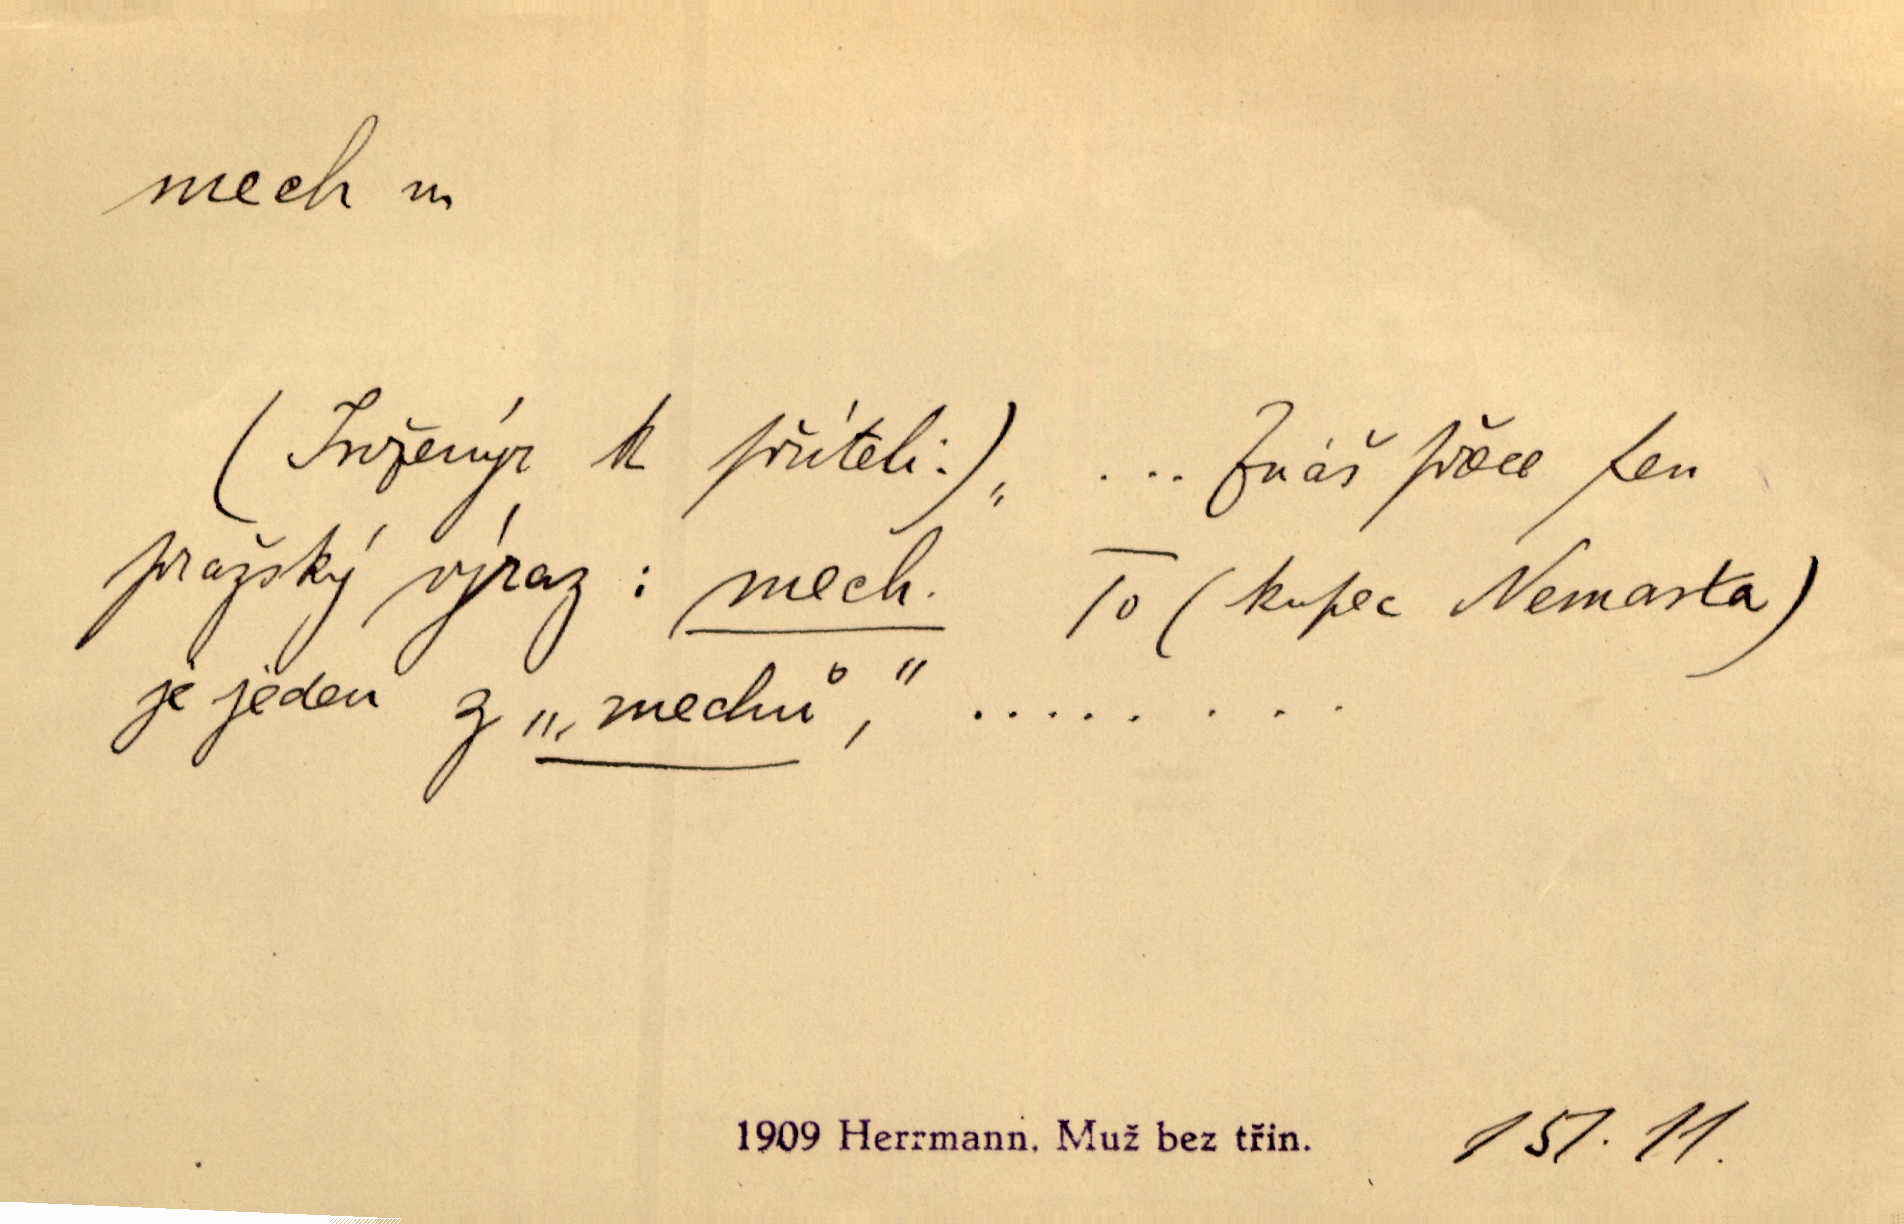 mech m
(Inženýr k příteli:) „ ... Znáš přece ten
pražský výraz: mech. To (kupec Nemasta)
je jeden z „„mechů,“ ........
1909 Herrmann. Muž bez třin. 151. 11.